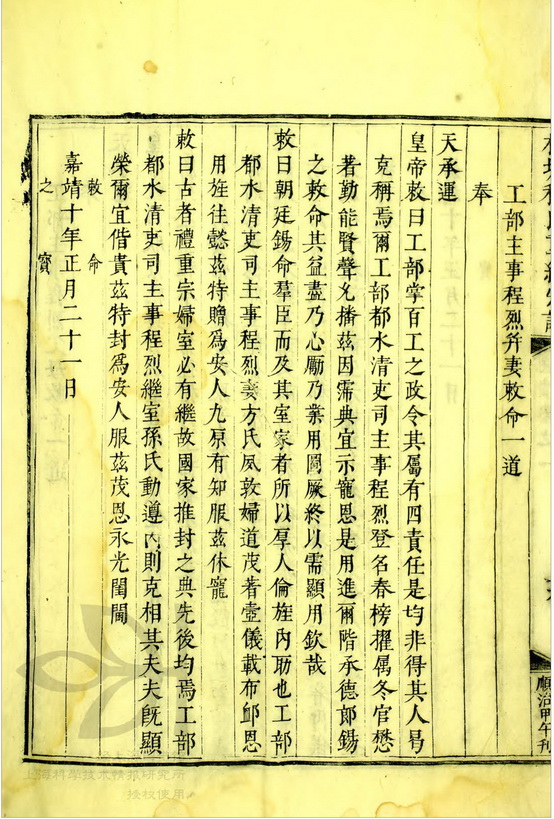 工部主事程烈并妻敕命一道
奉
天承運
皇帝敕曰工部掌百工之政令其屬有四責任是均非得其人曷
克稱焉爾工部都水清吏司主事程烈登名春榜擢屬冬官懋
著勤能賢聲允播茲因霈典宜示寵恩是用進爾階承德郎錫
之敕命其益盡乃心勵乃業用圖厥終以需顯用欽哉
敕曰朝廷錫命羣臣而及其室家者所以厚人倫旌內助也工部
都水清吏司主事程烈妻方氏夙敦婦道茂著壼儀載布卹恩
用旌往懿茲特贈爲安人九原有知服茲休寵
敕曰古者禮重宗婦室必有繼故國家推封之典先後均焉工部
都水清吏司主事程烈繼室孫氏動遵內則克相其夫夫既顯
榮爾宜偕貴茲特封爲安人服茲茂恩永光閨閫
敕命
嘉靖十年正月二十一日
之寶
順治甲午刊
上海科學技術情報研究所
授权使用